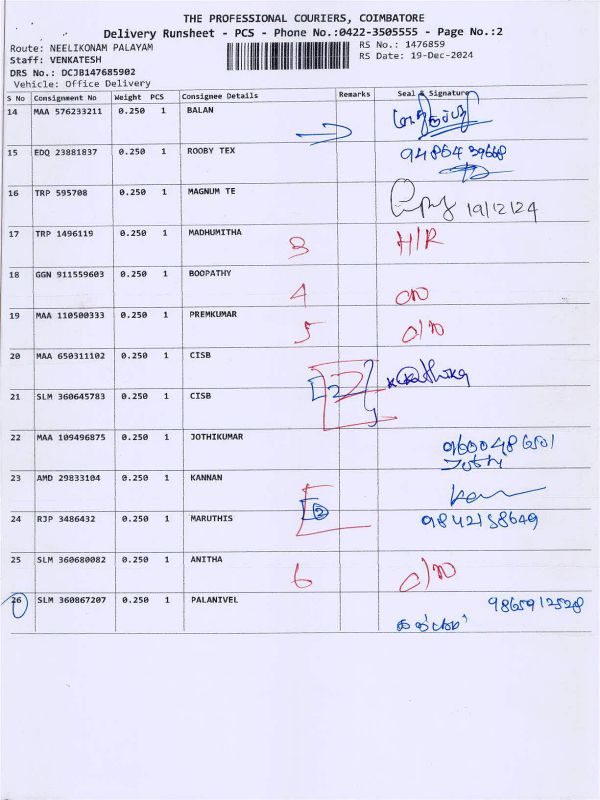 THE PROFESSIONAL COURIERS, COIMBATORE
Delivery Runsheet - PCS - Phone No.:0422-3505555 - Page No.:2
Route: NEELIKONAM PALAYAM
RS No.: 1476859
Staff: VENKATESH
RS Date: 19-Dec-2024
DRS No.: DCJB147685902
Vehicle: Office Delivery
S No Consignment No Weight PCS Consignee Details Remarks Seal & Signature
14 MAA 576233211 0.250 1 BALAN
15 EDQ 23881837 0.250 1 ROOBY TEX
16 TRP 595708 0.250 1 MAGNUM TE 19/12/24
17 TRP 1496119 0.250 1 MADHUMITHA 3 H/R
18 GGN 911559603 0.250 1 BOOPATHY 4
19 MAA 110500333 0.250 1 PREMKUMAR 5 O/N
20 MAA 650311102 0.250 1 CISB
21 SLM 360645783 0.250 1 CISB 2
22 MAA 109496875 0.250 1 JOTHIKUMAR
23 AMD 29833104 0.250 1 KANNAN
24 RJP 3486432 0.250 1 MARUTHIS 2 9842158649
25 SLM 360680082 0.250 1 ANITHA 6 O/N
26 SLM 360867207 0.250 1 PALANIVEL 9865912528